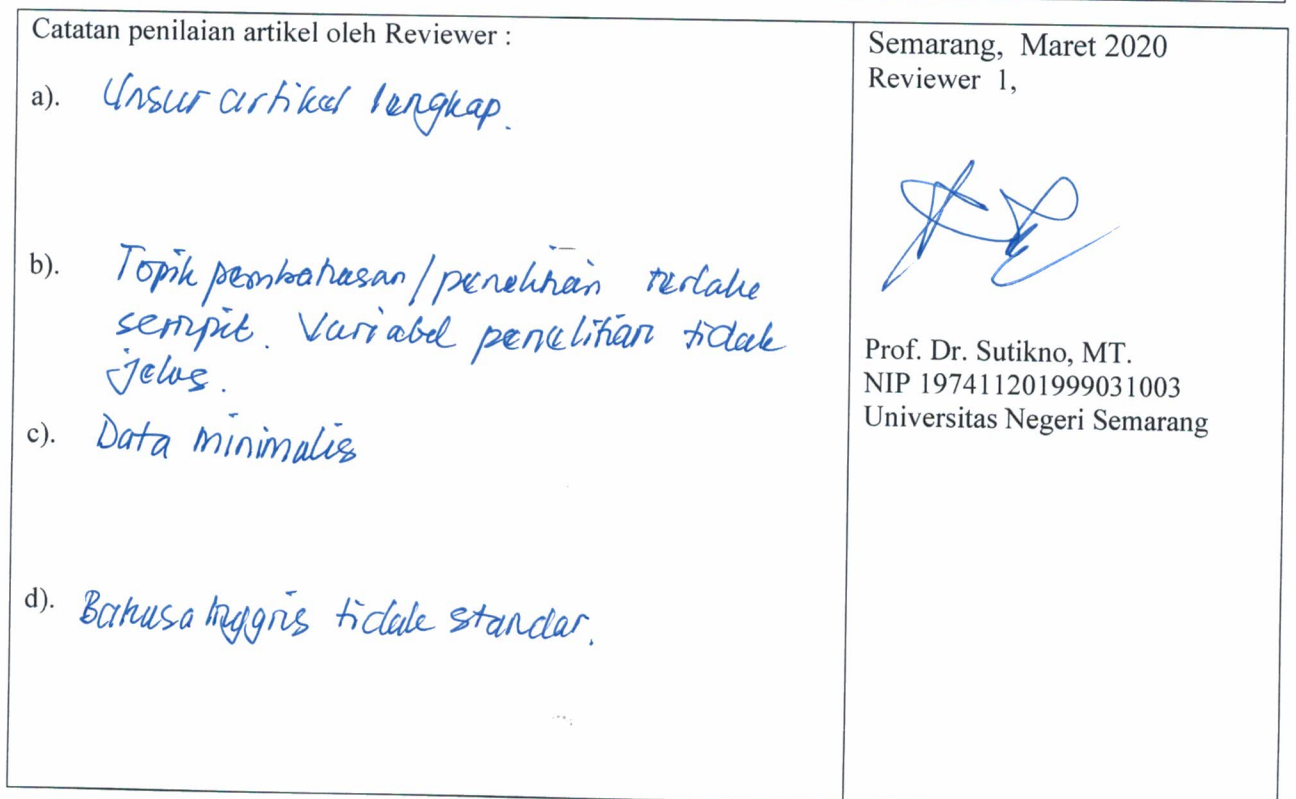 Catatan penilaian artikel oleh Reviewer :
a). Unsur artikel lengkap.
b). Topik pembahasan/penelitian terlalu
sempit. Variabel penelitian tidak
jelas.
c). Data minimalis
d). Bahasa Inggris tidak standar.
Semarang, Maret 2020
Reviewer 1,
Prof. Dr. Sutikno, MT.
NIP 197411201999031003
Universitas Negeri Semarang